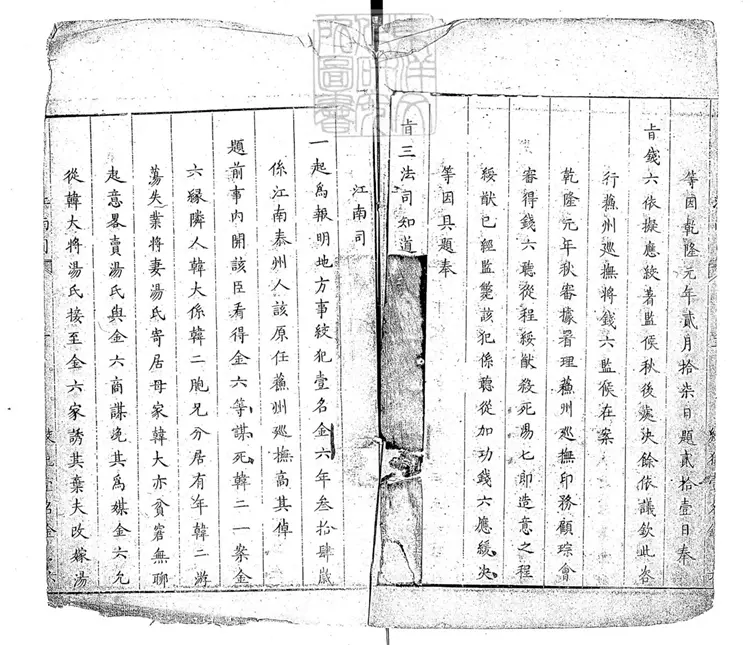 等因乾隆元年貳月拾柒日題貳拾壹日奉
旨錢六依擬應絞著監候秋後處決餘依議欽此咨
行蘇州巡撫將錢六監候在案
乾隆元年秋審據署理蘇州巡撫印務顧琮會
審得錢六聽從程綏猷殺死湯七即造意之程
綏猷已經監斃該犯係聽從加功錢六應緩決
等因具題奉
旨三法司知道
江南司
一起為報明地方事絞犯壹名金六年叁拾肆歲
係江南泰州人該原任蘇州巡撫高其倬
題前事內開該臣看得金六等謀死韓二一案金
六緣隣人韓大係韓二胞兄分居有年韓二游
蕩失業將妻湯氏寄居母家韓大亦貧窘無聊
起意畧賣湯氏與金六商謀浼其為媒金六允
從韓大將湯氏接至金六家誘其棄夫改嫁湯